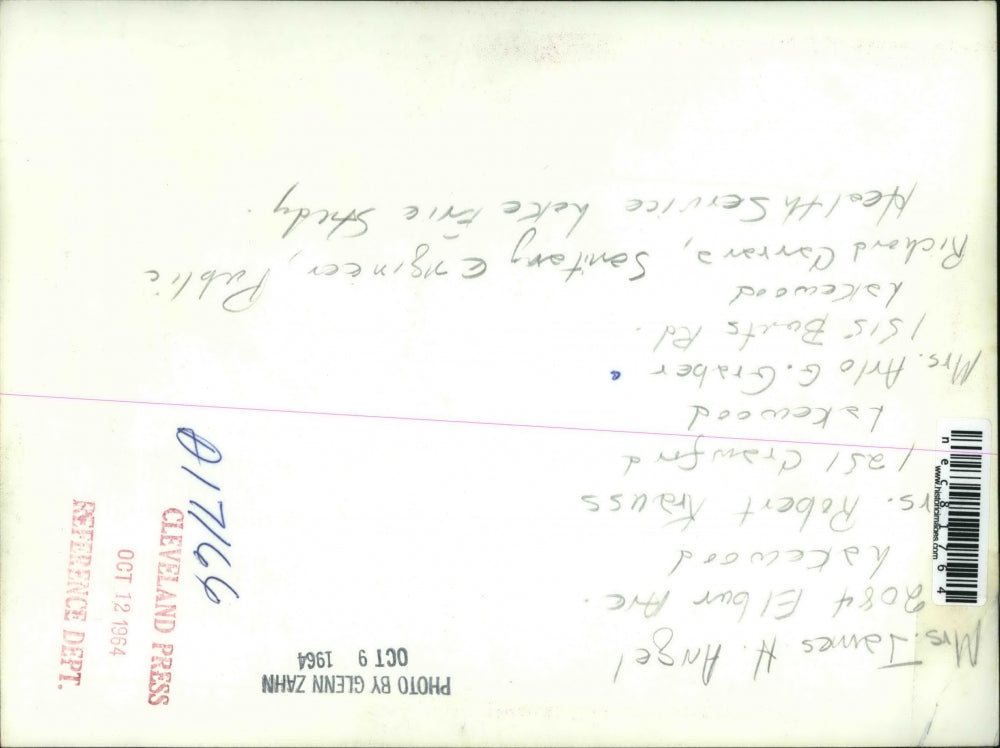 Mrs. James H. Angel
2084 Elbur Ave.
Lakewood
rs. Robert Krauss
1251 Crawford
Lakewood
Mrs. Arlo G. Graber
1515 Bunts Rd.
Lakewood
Richard Carrara, Sanitary Engineer, Public
Health Service Lake Erie Study.
PHOTO BY GLENN ZAHN
OCT 9 1964
D17166
CLEVELAND PRESS
OCT 12 1964
REFERENCE DEPT.
www.historicimages.com
nec81764